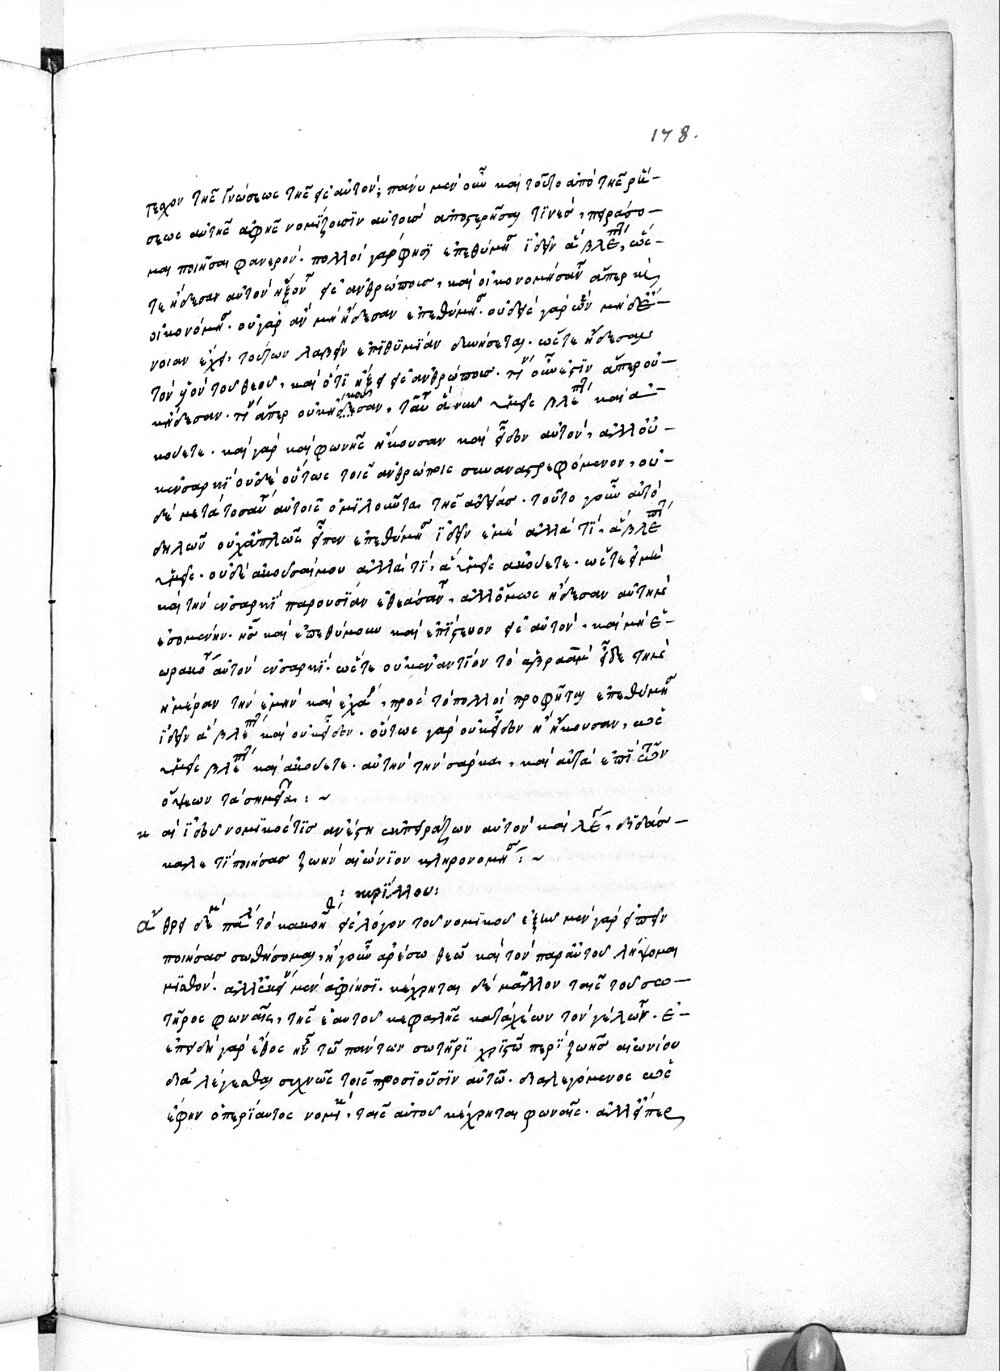 178.
τεχον τῆς γνώσεως τῆς εἰς αὐτόν; πάνυ μὲν οὖν καὶ τοῦτο ἀπὸ τῆς ῥή-
σεως αὐτῆς ἀφ' ἧς νομίζουσιν αὐτοὺς ἀποστερῆσαί τινες, πειράσο-
μαι ποιῆσαι φανερόν. πολλοὶ γὰρ φησὶ ἐπεθύμη ἰδεῖν ἃ βλέπ, ὥσ-
τε ᾔδεσαν αὐτὸν ἥξον εἰς ἀνθρώπους, καὶ οἰκονομήσαν ἅπερ καὶ
οἰκονόμη. οὐ γὰρ ἂν μὴ ᾔδεσαν ἐπεθύμη. οὐδεὶς γὰρ ὧν μηδὲ ἔν-
νοιαν ἔχει, τούτων λαβεῖν ἐπιθυμίαν δυνήσεται. ὥστε ᾔδεσαν
τὸν υἱὸν τοῦ θεοῦ, καὶ ὅτι ἥξει εἰς ἀνθρώπους. τί οὖν ἐστὶν ἅπερ οὐ-
κ ᾔδεσαν. τί ἅπερ οὐκ ἤκουσαν, ταῦ ἃ νῦν ὑμεῖς βλέπ καὶ ἀ-
κούετε. καὶ γὰρ καὶ φωνῆς ἤκουσαν καὶ εἶδον αὐτόν, ἀλλ' οὐ-
κ ἐν σαρκὶ οὐδὲ οὕτως τοῖς ἀνθρώποις συναναστρεφόμενον, οὐ-
δὲ μετὰ τοσαύ αὐτοῖς ὁμιλοῦντα τῆς ἀδείας. τοῦτο γοῦν αὐτὸ
δηλῶν οὐχ ἁπλῶς εἶπεν ἐπεθύμη ἰδεῖν ἐμὲ ἀλλὰ τί, ἃ βλέπ
ὑμεῖς. οὐδὲ ἀκοῦσαί μου ἀλλὰ τί, ἃ ὑμεῖς ἀκούετε. ὥστε εἰ μὴ
καὶ τὴν ἐν σαρκὶ παρουσίαν ἐθεάσαν, ἀλλ' ὅμως ᾔδεσαν αὐτὴν
ἐσομένην. ἧς καὶ ἐπεθύμουν καὶ ἐπίστευον εἰς αὐτόν, καὶ μὴ ἑ-
ωρακό αὐτὸν ἐν σαρκί. ὥστε οὐκ ἐναντίον τὸ ἀβραὰμ εἶδε τὴν
ἡμέραν τὴν ἐμὴν καὶ ἐχά, πρὸς τὸ πολλοὶ προφῆται ἐπεθύμη
ἰδεῖν ἃ βλέπ καὶ οὐκ εἶδον. οὕτως γὰρ οὐκ εἶδον ἢ ἤκουσαν, ὡς
ὑμεῖς βλέπ καὶ ἀκούετε. αὐτὴν τὴν σάρκα, καὶ αὐτὰ ἐπὶ τῶν
ὄψεων τὰ σημεῖα: ~
κ αὶ ἰδοὺ νομικός τις ἀνέστη ἐκπειράζων αὐτὸν καὶ λέγ, διδάσ-
καλε τί ποιήσας ζωὴν αἰώνιον κληρονομή: ~
κυρίλλου:
ἄ θρει δέ μοι πάλ τὸ κακόη εἰς λόγον τοῦ νομικοῦ ἐξὸν μὲν γὰρ εἰπεῖν
ποιήσας σωθήσομαι, ἤγουν ἀρέσω θεῷ καὶ τὸν παρ' αὐτοῦ λήψομαι
μισθόν. ἀλλ' ἐκεῖ μὲν ἀφίησι. κέχρηται δὲ μᾶλλον ταῖς τοῦ σω-
τῆρος φωναῖς, τῆς ἑαυτοῦ κεφαλῆς καταχέων τὸν γέλων. ἐ-
επειδὴ γὰρ ἔθος ἦν τῷ πάντων σωτῆρι χριστῷ περὶ ζωῆς αἰωνίου
διαλέγεσθαι συχνῶς τοῖς προσιοῦσιν αὐτῷ. διαλεγόμενος ὡς
ἔφην ὑπερίαυτος νομικ, ταῖς αὐτοῦ κέχρηται φωναῖς. ἀλλ' εἴπερ